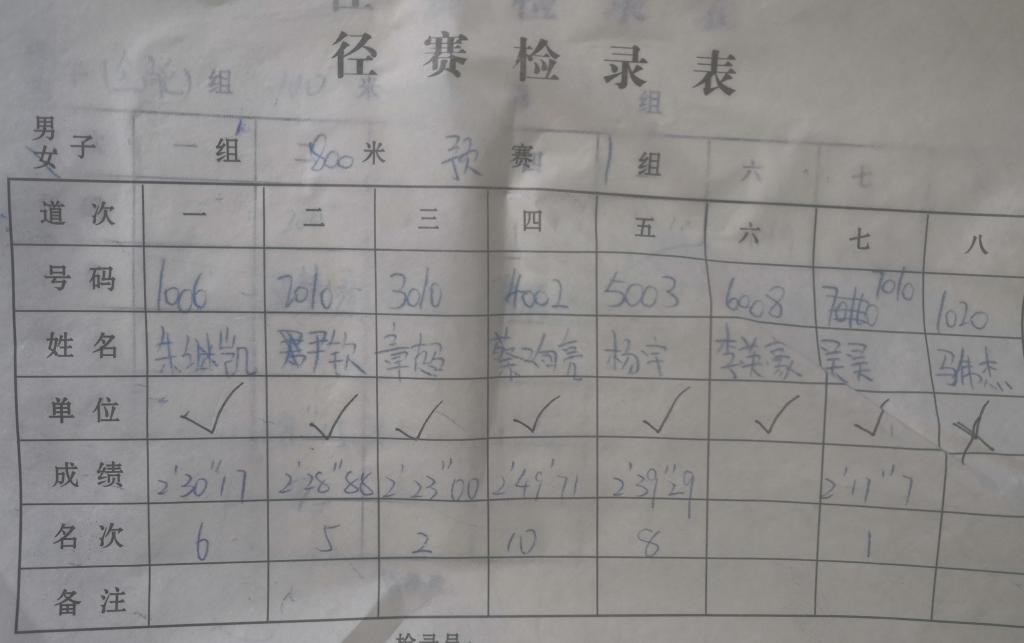 径赛检录表
男女子 一组 800米 预赛 1组
道次 一 二 三 四 五 六 七 八
号码 1006 2010 3010 4002 5003 6008 7010 1020
姓名 朱继凯 尹钦 章 蔡 亮 杨宇 李英豪 吴昊 马伟杰
单位
成绩 2'30"17 2'28"88 2'23"00 2'49"71 2'39"29 2'17"7
名次 6 5 2 10 8 1
备注
检录员: